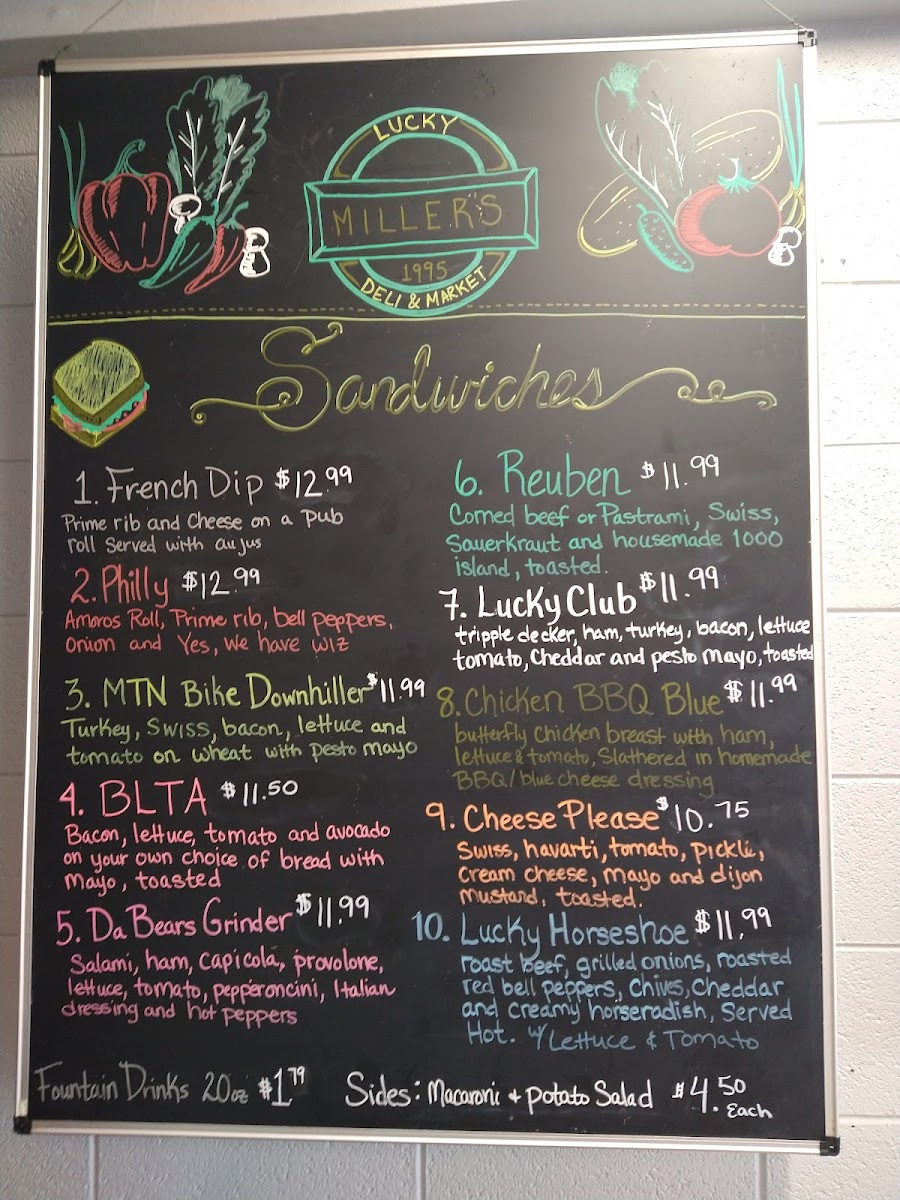 LUCKY
MILLER'S
1995
DELI & MARKET
Sandwiches
1. French Dip $12.99
Prime rib and Cheese on a Pub
roll Served with au jus
2. Philly $12.99
Amoros Roll, Prime rib, bell peppers,
onion and Yes, we have wiz
3. MTN Bike Downhiller $11.99
Turkey, Swiss, bacon, lettuce and
tomato on wheat with pesto mayo
4. BLTA $11.50
Bacon, lettuce, tomato and avocado
on your own choice of bread with
Mayo, toasted
5. Da Bears Grinder $11.99
Salami, ham, capicola, provolone,
lettuce, tomato, pepperoncini, Italian
dressing and hot peppers
6. Reuben $11.99
Corned beef or Pastrami, Swiss,
Sauerkraut and housemade 1000
island, toasted.
7. Lucky Club $11.99
tripple decker, ham, turkey, bacon, lettuce
tomato, Cheddar and pesto mayo, toasted
8. Chicken BBQ Blue $11.99
butterfly chicken breast with ham,
lettuce & tomato, Slathered in homemade
BBQ/blue cheese dressing
9. Cheese Please $10.75
Swiss, havarti, tomato, pickle,
Cream cheese, mayo and dijon
mustard, toasted.
10. Lucky Horseshoe $11.99
roast beef, grilled onions, roasted
red bell peppers, chives, Cheddar
and creamy horseradish, Served
Hot. w/ Lettuce & Tomato
Fountain Drinks 20oz $1.79
Sides: Macaroni + Potato Salad $4.50
Each